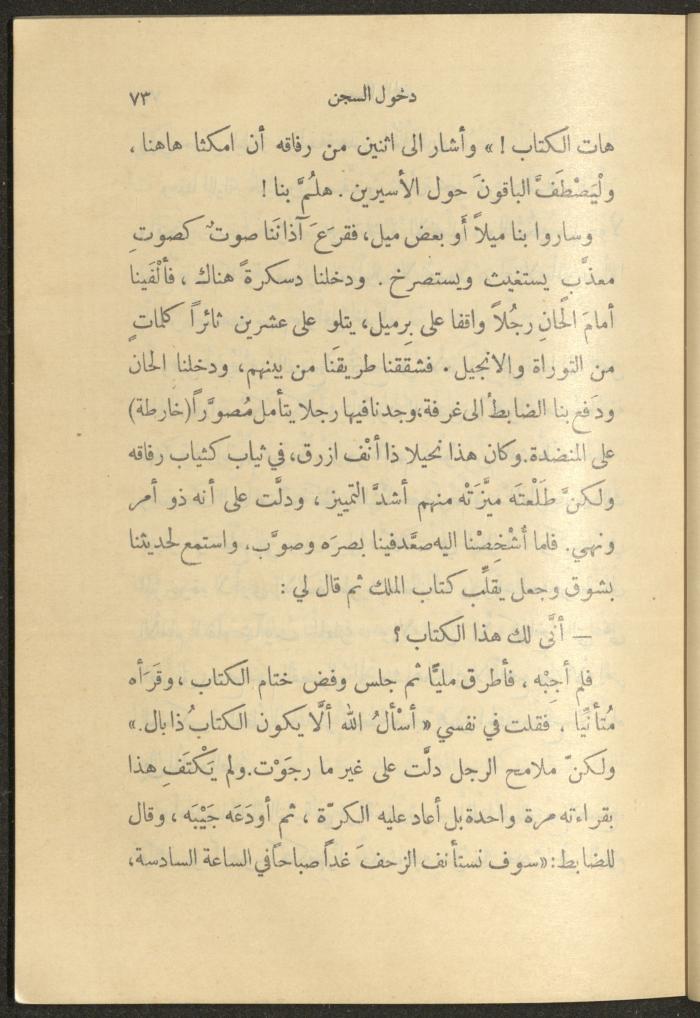 دخول السجن ٧٣
هات الكتاب ! » وأشار الى اثنين من رفاقه أن امكثا هاهنا ،
ولْيَصْطَفَّ الباقونَ حول الأسيرين . هلُمَّ بنا !
وساروا بنا ميلاً أَو بعض ميل، فقرَعَ آذانَنا صوتٌ كصوتِ
معذَّبٍ يستغيث ويستصرخ . ودخلنا دسكرةً هناك ، فألْفَينا
أمامَ الحانِ رجُلاً واقفا على بِرميل، يتلو على عشرين ثائراً كلماتٍ
من التوراة والانجيل . فشققنا طريقَنا من بينهم، ودخلنا الحان
ودَفع بنا الضابطُ الى غرفة،وجدنا فيها رجلا يتأمل مُصوَّراً(خارطة)
على المنضدة.وكان هذا نحيلا ذا أنْف ازرق، في ثياب كثياب رفاقه
ولكنَّ طَلْعتَه ميَّزَتْه منهم أشدَّ التمييز ، ودلَّت على أنه ذو أمر
ونهي. فلما أُشْخِصْنا اليه صعَّد فينا بصرَه وصوَّب، واستمع لحديثنا
بشوق وجعل يقلِّب كتاب الملك ثم قال لي :
— أنَّى لك هذا الكتاب ؟
فلم أجِبْه ، فأطرق مليًّا ثم جلس وفض ختام الكتاب ، وقَرَأه
مُتأنِّيًا . فقلت في نفسي « أسْألُ الله ألَّا يكون الكتابُ ذا بال . »
ولكنّ ملامح الرجل دلَّت على غير ما رجَوْت.ولم يَكْتَفِ هذا
بقراءته مرة واحدة بل أعاد عليه الكرّة ، ثم أودَعَه جَيْبَه ، وقال
للضابط: «سوف نستأنف الزحفَ غداً صباحاً في الساعة السادسة،